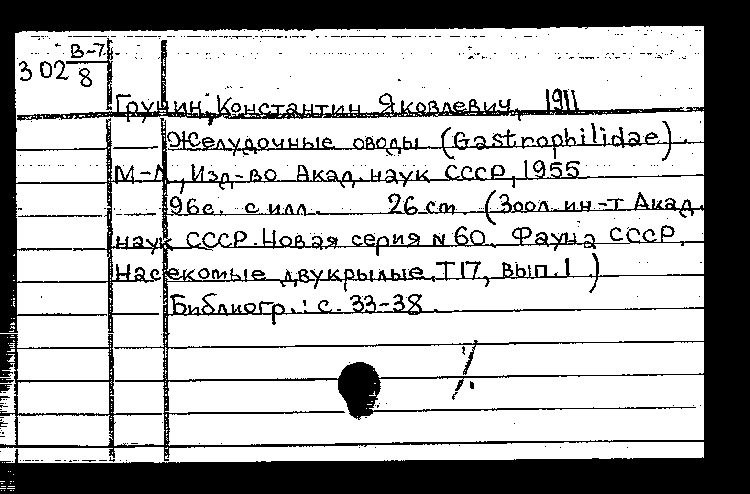 302 В-7/8
Грунин, Константин Яковлевич, 1911
Желудочные оводы (Gastrophilidae).
М-Л, Изд-во Акад. наук СССР, 1955
96с. с илл. 26 cm. (Зоол. ин-т Акад.
наук СССР. Новая серия N 60. Фауна СССР.
Насекомые двукрылые. Т17, вып. 1)
Библиогр.: с. 33-38.